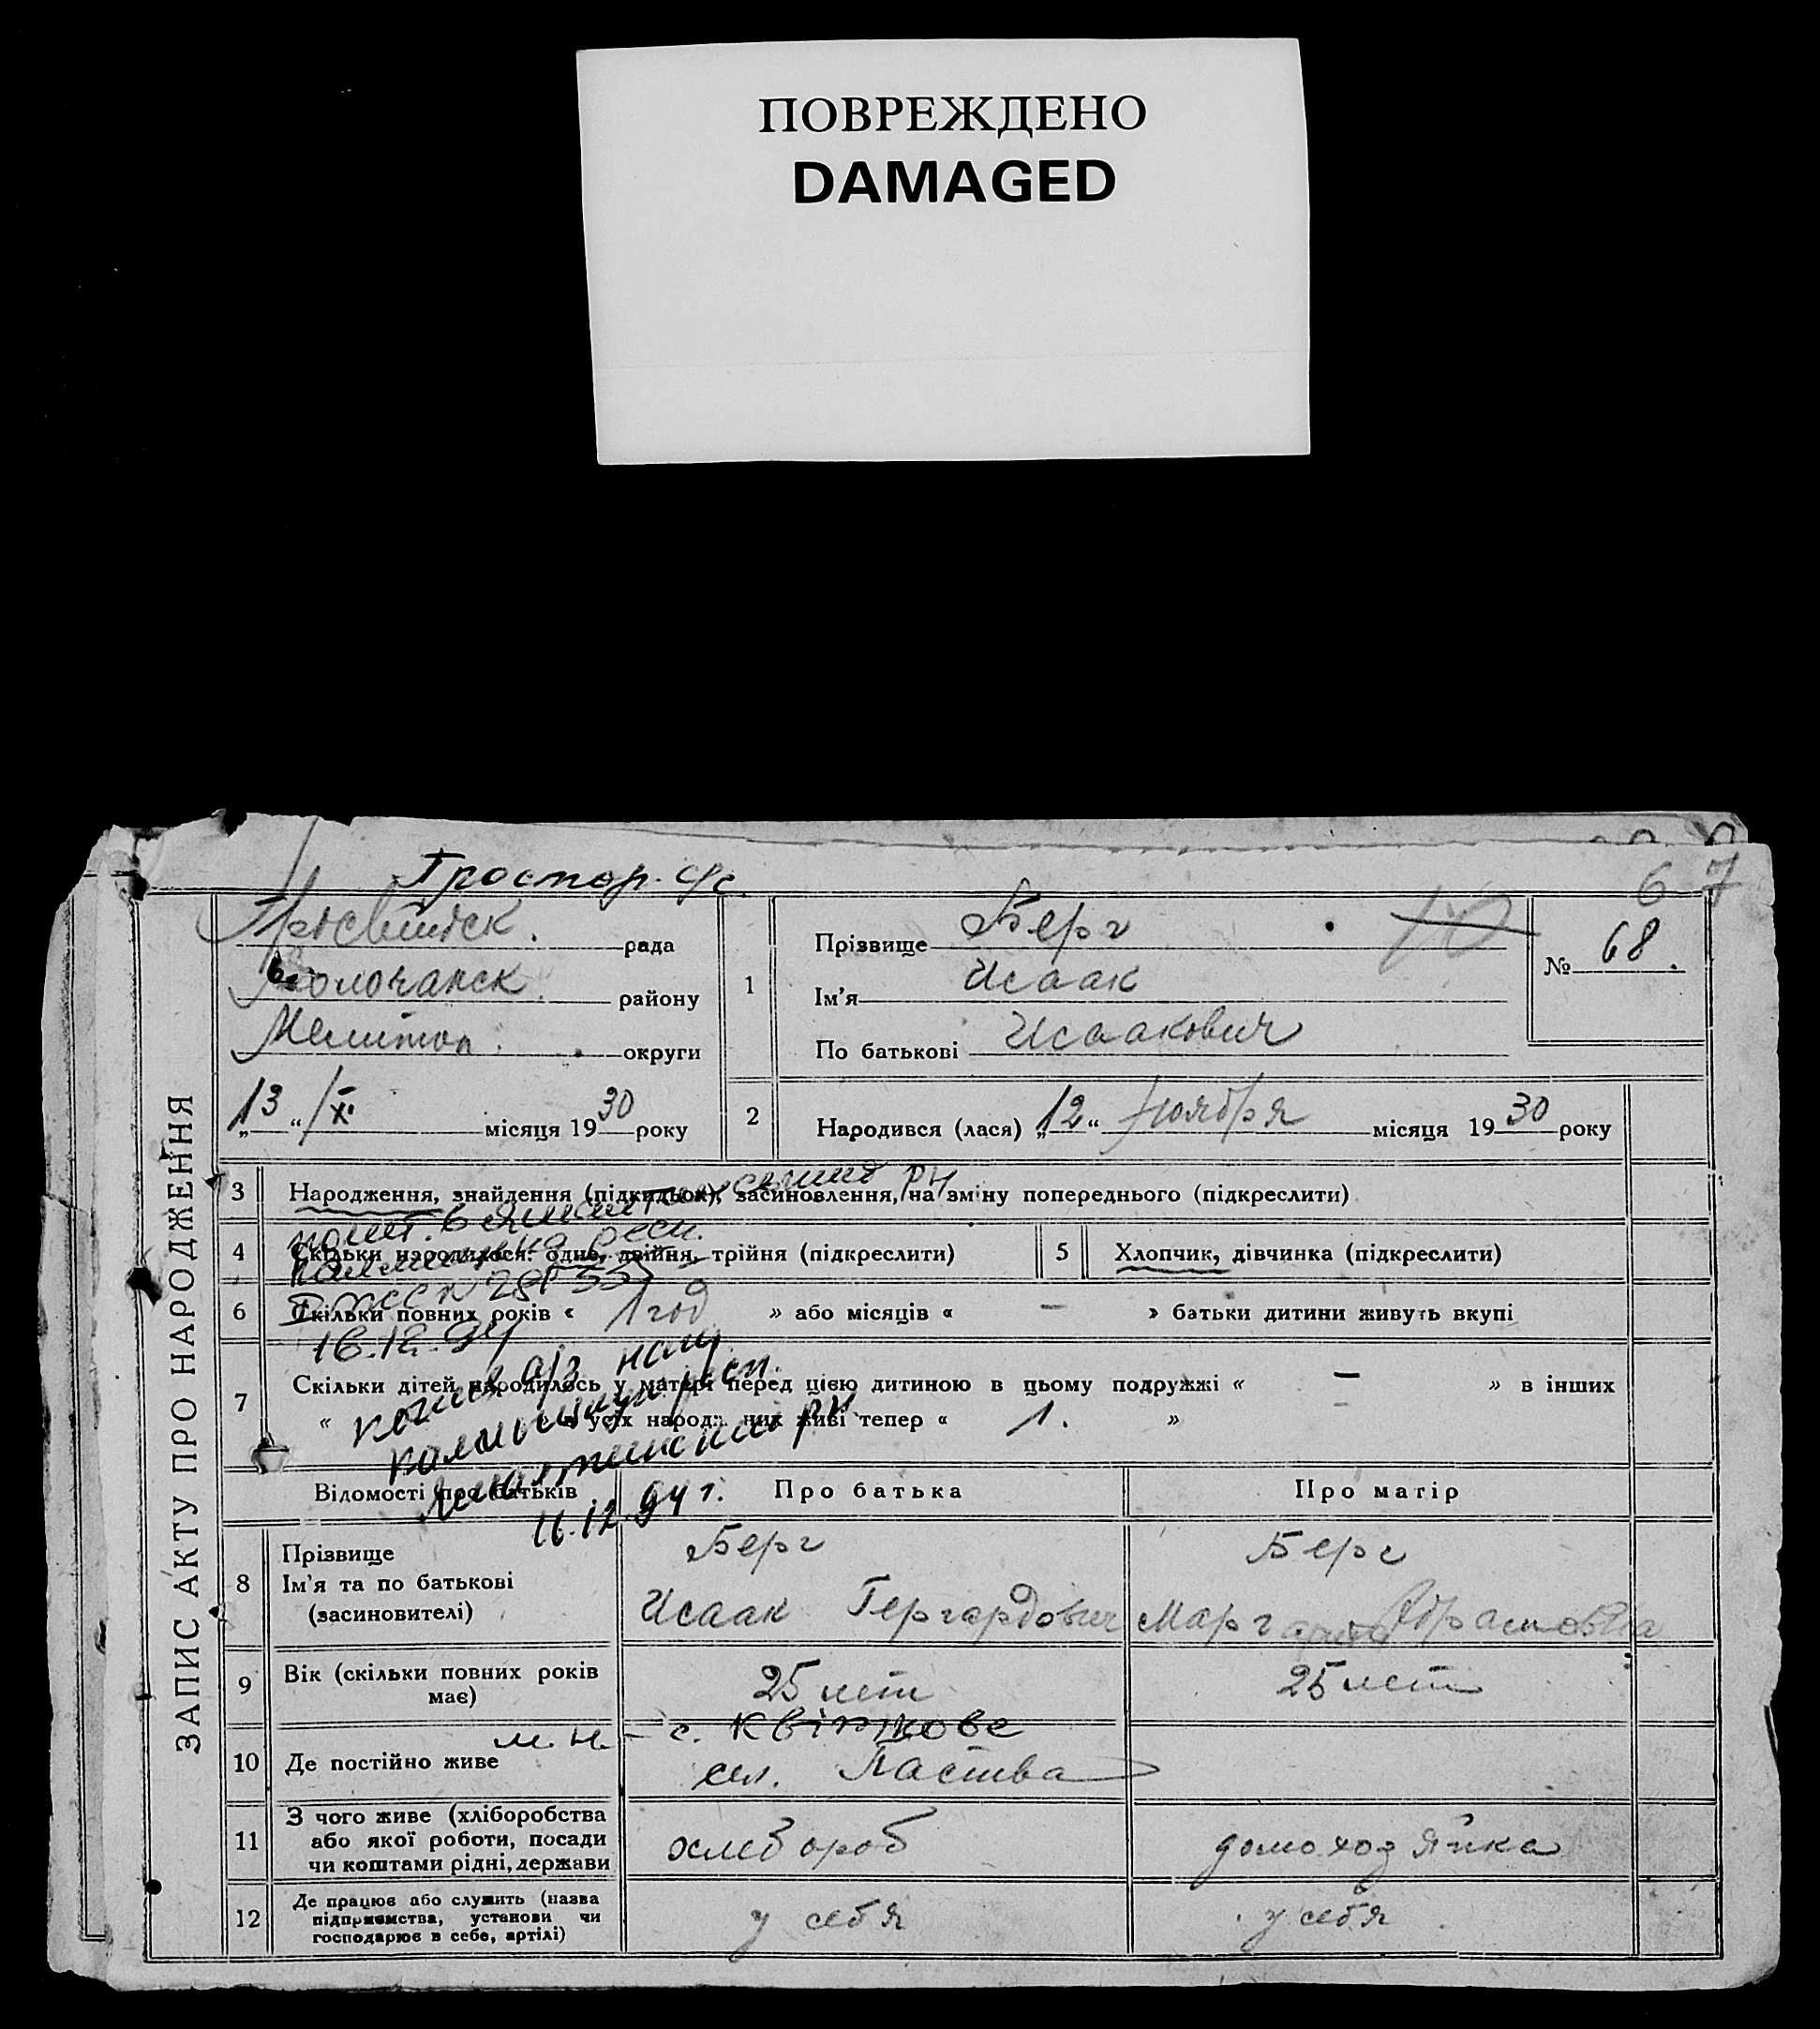 ПОВРЕЖДЕНО
DAMAGED
6 7
Простор. с/с.
рада
Молочанск. району
Мелитоп. округи
„13“ / XI місяця 1930 року
1
Прізвище Берг
Ім'я Исаак
По батькові Исаакович
№ 68.
2
Народився (лася) „12“ ноября місяця 1930 року
ЗАПИС АКТУ ПРО НАРОДЖЕННЯ
3 Народження, знайдення (підкидьок), засиновлення, на зміну попереднього (підкреслити)
4 Скільки народилося: одно, двійня, трійня (підкреслити)
5 Хлопчик, дівчинка (підкреслити)
6 Скільки повних років « 1 год » або місяців « — » батьки дитини живуть вкупі
16.12.94
7 Скільки дітей народилось у матері перед цією дитиною в цьому подружжі « — » в інших
« з усіх народ. них живі тепер « 1. »
11.12.94 г.
Відомості про батьків Про батька Про матір
8 Прізвище Берг Берг
Ім'я та по батькові
(засиновителі) Исаак Гергардович Маргарита Абрамовна
9 Вік (скільки повних років має) 25 лет 25 лет
м. н. – с. Квіткове
10 Де постійно живе сел. Паства
11 З чого живе (хліборобства
або якої роботи, посади
чи коштами рідні, держави хлебороб домоходяйка
12 Де працює або служить (назва
підприємства, установи чи
господарює в себе, артілі) у себя у себя